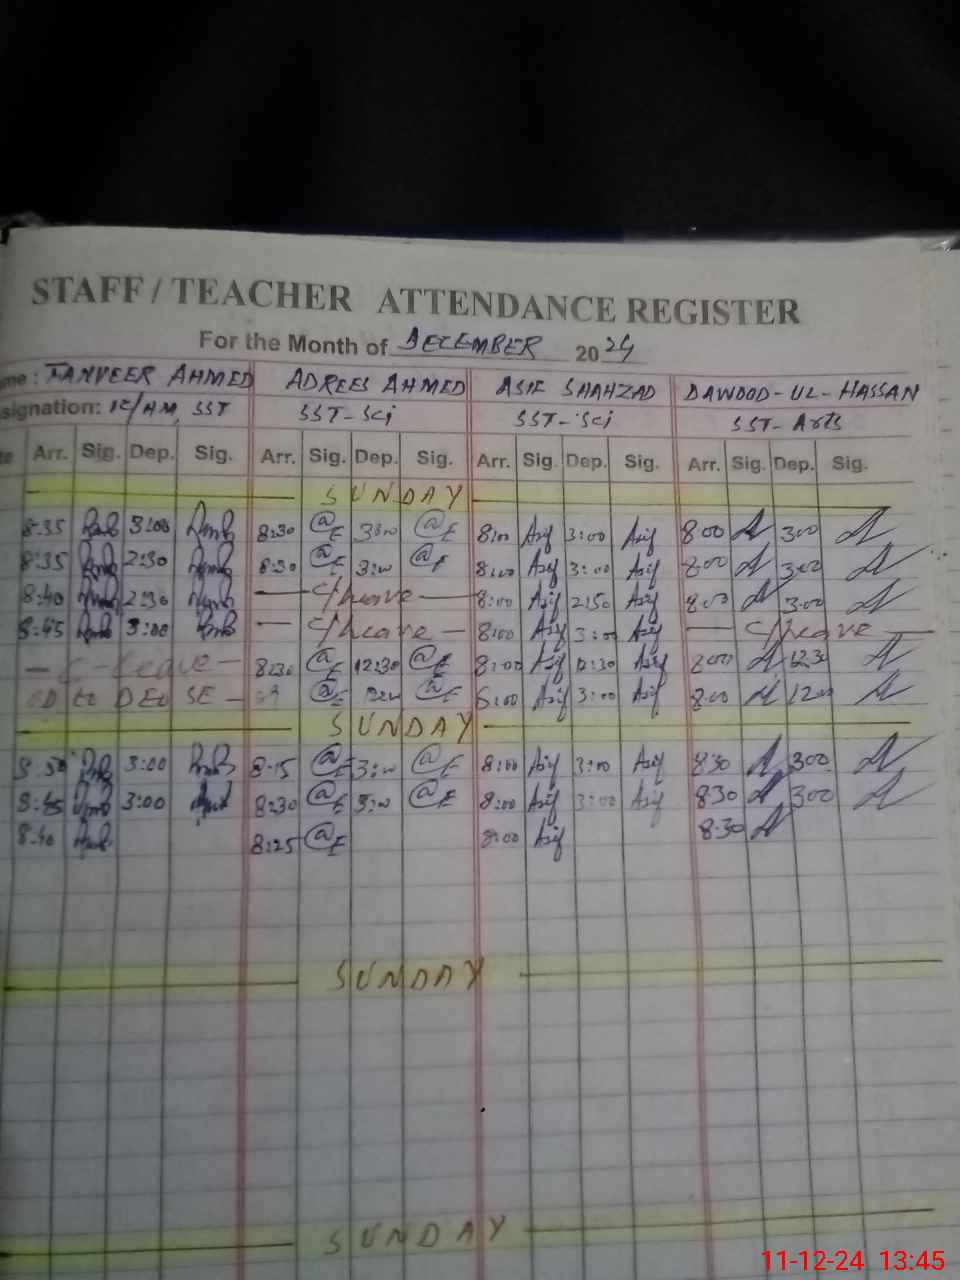 STAFF / TEACHER ATTENDANCE REGISTER
For the Month of DECEMBER 2024
me: TANVEER AHMED ADREES AHMED ASIF SHAHZAD DAWOOD-UL-HASSAN
signation: IC/HM, SST SST-Sci SST-Sci SST-Arts
te Arr. Sig. Dep. Sig. Arr. Sig. Dep. Sig. Arr. Sig. Dep. Sig. Arr. Sig. Dep. Sig.
SUNDAY
8:35 3:00 8:30 3:00 8:00 Asif 3:00 Asif 8:00 3:00
8:35 2:30 8:30 3:00 8:00 Asif 3:00 Asif 8:00 3:00
8:40 2:30 C/Leave 8:00 Asif 2:50 Asif 8:00 3:00
8:45 3:00 C/Leave 8:00 Asif 3:00 Asif C/Leave
C-Leave 8:30 12:30 8:00 Asif 12:30 Asif 8:00 12:30
OD to DEO SE 8:00 Asif 3:00 Asif 8:00 12:00
SUNDAY
8:50 3:00 8:15 3:00 8:00 Asif 3:00 Asif 8:30 3:00
8:45 3:00 8:30 3:00 8:00 Asif 3:00 Asif 8:30 3:00
8:40 8:25 8:00 Asif 8:30
SUNDAY
SUNDAY
11-12-24 13:45